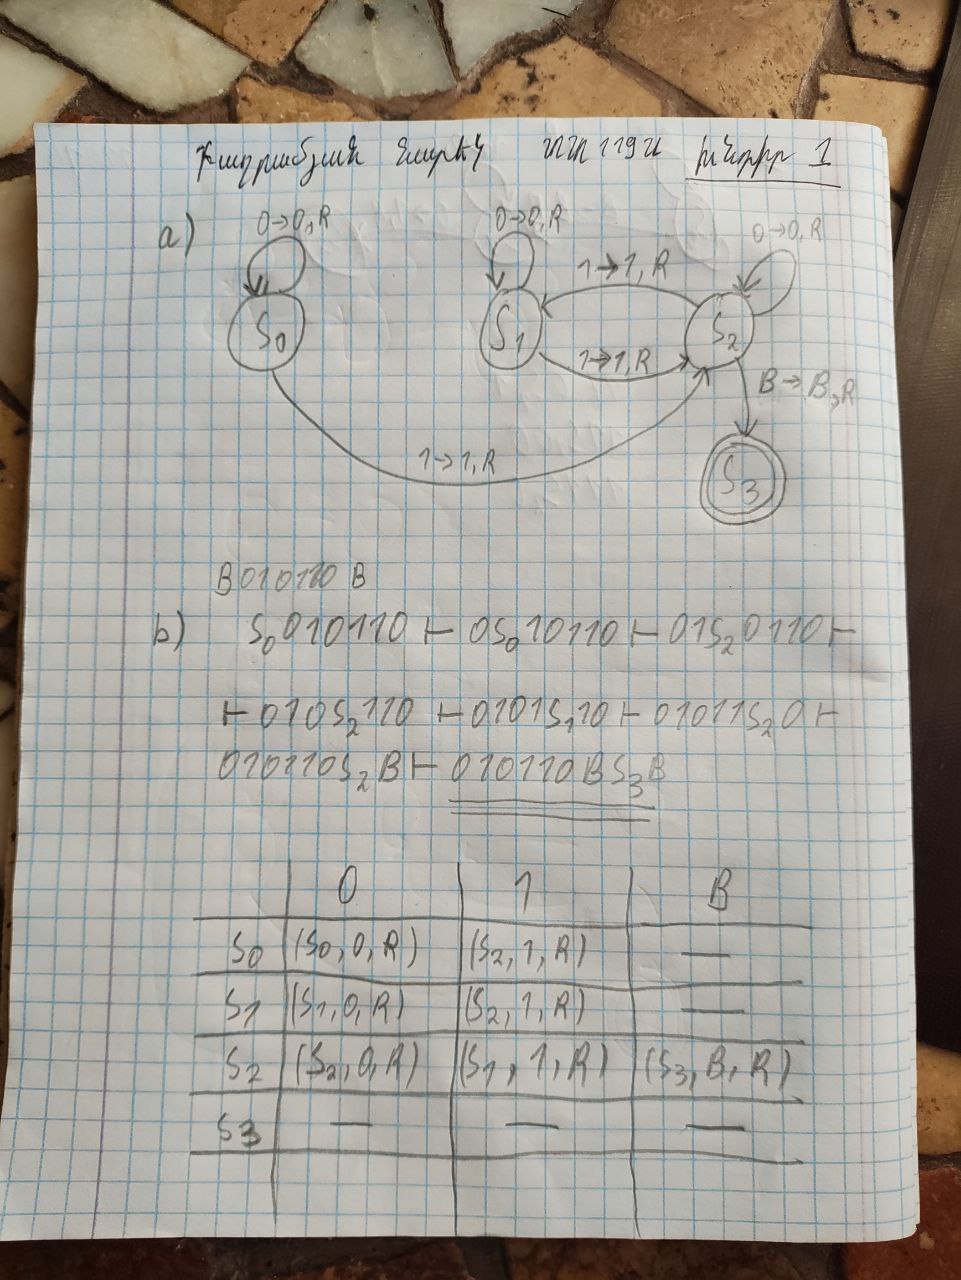 119 Խնդիր 1
a)
0→0,R 0→0,R 0→0,R
1→1,R
S₀ S₁ S₂
1→1,R
B→B,R
1→1,R
S₃
B010110B
b) S₀010110 ⊢ 0S₀10110 ⊢ 01S₂0110 ⊢
⊢ 010S₂110 ⊢ 0101S₁10 ⊢ 01011S₂0 ⊢
010110S₂B ⊢ 010110BS₃B
0 1 B
S₀ (S₀, 0, R) (S₂, 1, R) —
S₁ (S₁, 0, R) (S₂, 1, R) —
S₂ (S₂, 0, R) (S₁, 1, R) (S₃, B, R)
S₃ — — —